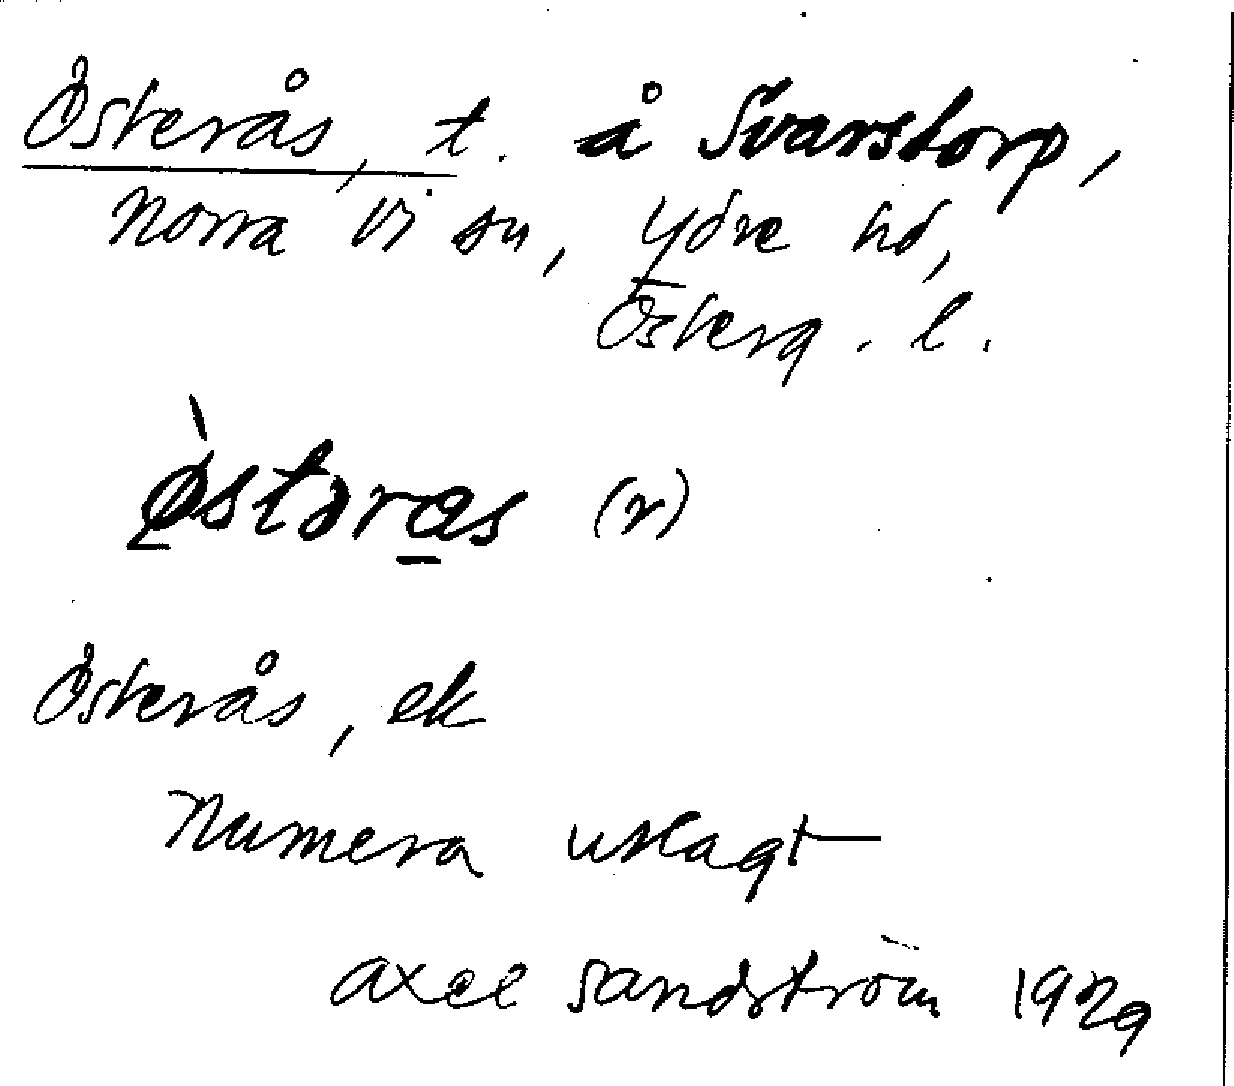 Österås, t. å Svarstorp,
Norra Vi sn, Ydre hd,
Österg. l.
(r)
Österås, ek
Numera utlagt
Axel Sandström 1929